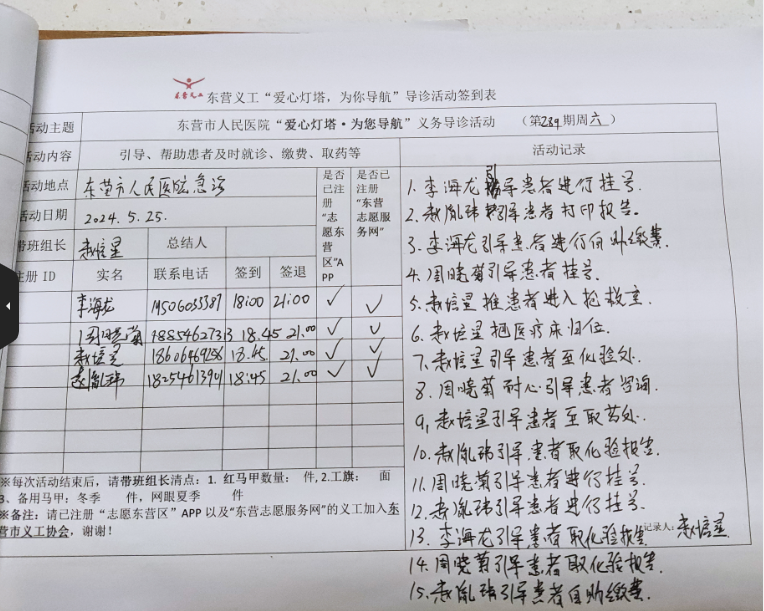 东营义工 东营义工“爱心灯塔，为你导航”导诊活动签到表
活动主题 东营市人民医院“爱心灯塔·为您导航”义务导诊活动 （第289期周六）
活动内容 引导、帮助患者及时就诊、缴费、取药等 活动记录
活动地点 东营市人民医院急诊
活动日期 2024.5.25.
带班组长 袁培星 总结人
注册 ID 实名 联系电话 签到 签退 是否已注册“志愿东营区”APP 是否已注册“东营志愿服务网”
李海龙 18:00 21:00 ✓ ✓
周晓菊 18854627313 18.45 21.00 ✓ ✓
袁培星 21.00 ✓ ✓
赵胤玮 18:45 21.00 ✓ ✓
1. 李海龙引导患者进行挂号.
2. 赵胤玮引导患者打印报告.
3. 李海龙引导患者进行自助缴费.
4. 周晓菊引导患者挂号.
5. 袁培星推患者进入抢救室.
6. 袁培星把医疗床归位.
7. 袁培星引导患者至化验处.
8. 周晓菊耐心引导患者咨询.
9, 袁培星引导患者至取药处.
10. 赵胤玮引导患者取化验报告.
11. 周晓菊引导患者进行挂号.
12. 赵胤玮引导患者进行挂号.
13. 李海龙引导患者取化验报告
记录人：袁培星
14. 周晓菊引导患者取化验报告.
15. 赵胤玮引导患者自助缴费.
※每次活动结束后，请带班组长清点：1. 红马甲数量： 件，2.工旗： 面
3、备用马甲：冬季 件，网眼夏季 件
※备注：请已注册“志愿东营区”APP 以及“东营志愿服务网”的义工加入东
营市义工协会，谢谢！